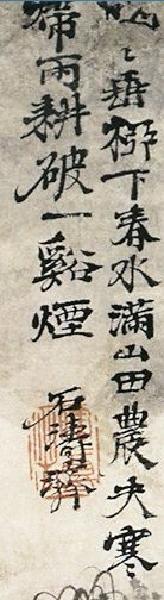 〻垂柳下春水滿山田農夫寒
帶雨耕破一谿煙
石濤濟